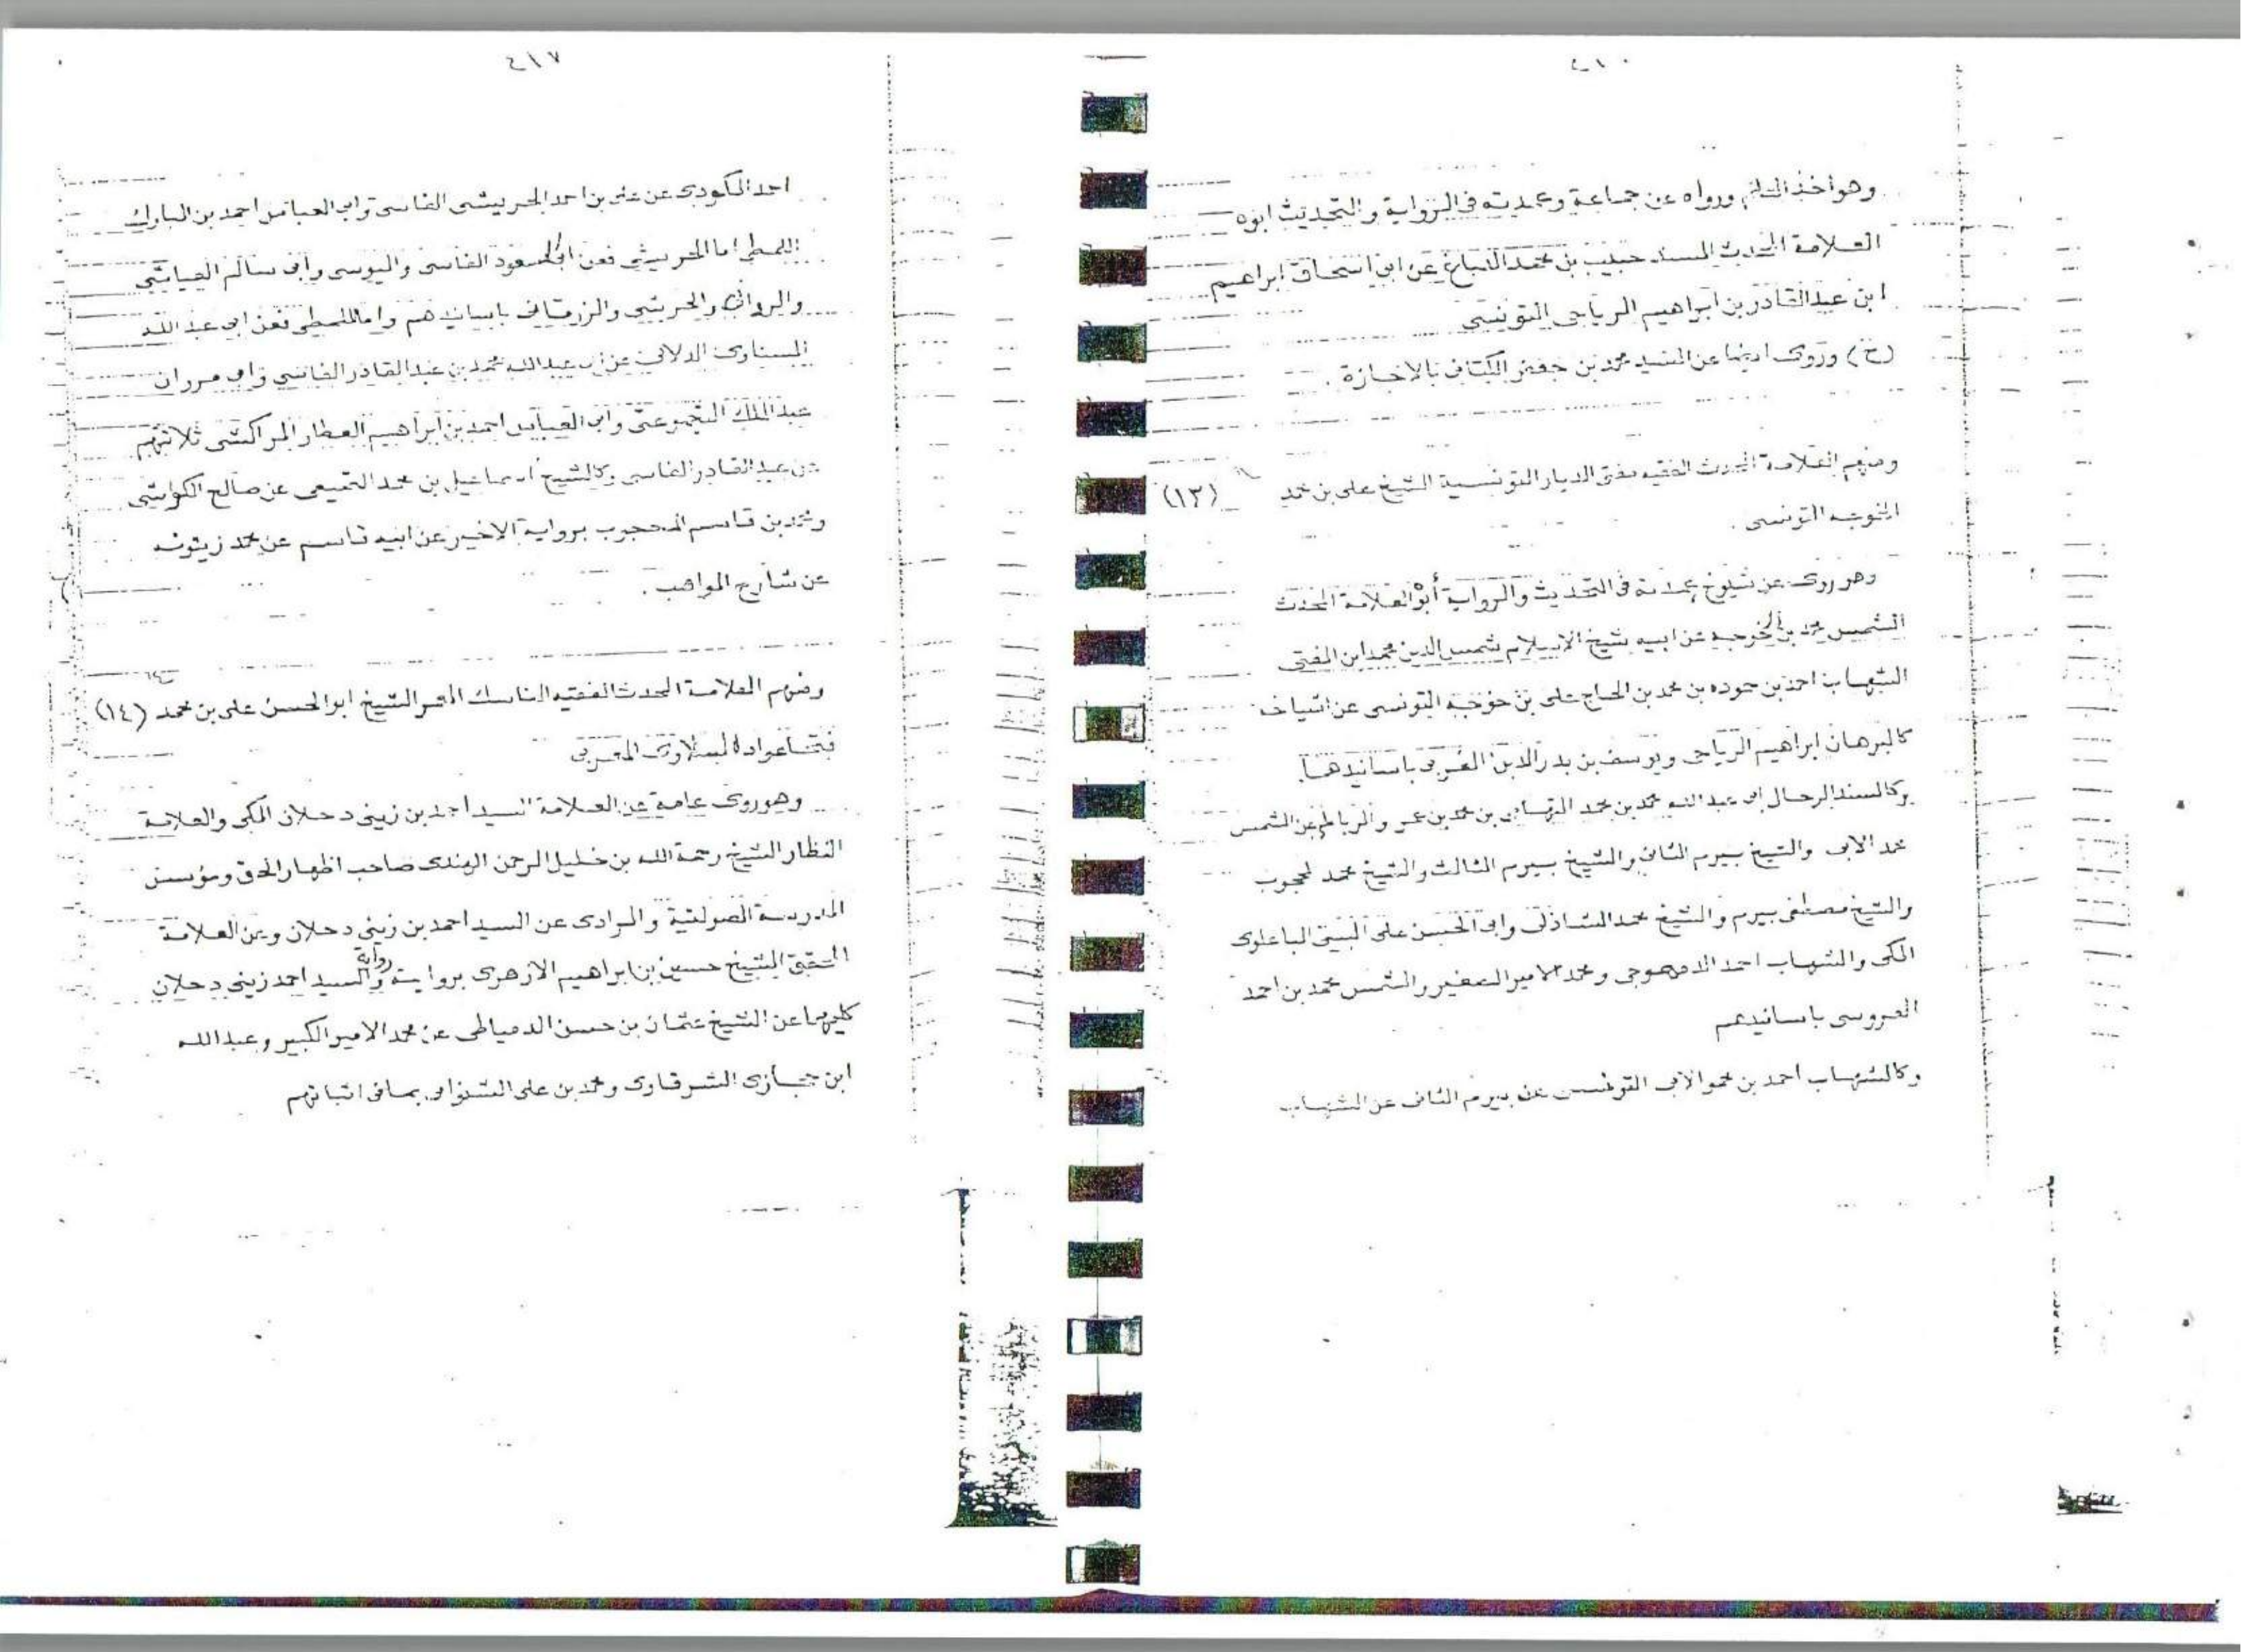 ٤١٠
وهو أخذ العلم ورواه عن جماعة وعمدته في الرواية والتحديث ابوه
العلامة المحدث المسند حبيب بن محمد الدباغ عن ابي اسحاق ابراهيم
ابن عبد القادر بن ابراهيم الرياحي التونسي
(ح) وروى ايضا عن السيد محمد بن جعفر الكتاني بالاجازة .
ومنهم العلامة المحدث الفقيه مفتى الديار التونسية الشيخ على بن محمد (١٣)
الخوجه التونسى .
وهو روى عن شيوخ عمدته في التحديث والرواية أبوه العلامة المحدث
الشمس محمد بن الخوجيه عن ابيه شيخ الاسلام شمس الدين محمد ابن المفتى
الشهاب احمد بن حموده بن محمد بن الحاج على بن خوجه التونسى عن اشياخه
كالبرهان ابراهيم الرياحى ويوسف بن بدر الدين المغربى باسانيدهما.
وكالسند الرحال ابى عبد الله محمد بن محمد التهامى بن محمد بن عمرو الرباطى عن الشمس
محمد الابى والشيخ بيرم الثانى والشيخ بيرم الثالث والشيخ محمد المحجوب
والشيخ مصطفى بيرم والشيخ محمد الشاذلى وابى الحسن على البيتى الباعلوى
المكى والشهاب احمد الدمهوجى ومحمد الامير الصغير والشمس محمد بن احمد
العروسى باسانيدهم
وكالشهاب احمد بن الابى التونسى عن بيرم الثانى عن الشهاب
٤١٧
احمد المكودى عن على بن احمد الحريشى الفاسى وابى العباس احمد بن المبارك
اللمطى اما الحريشى فعن ابى السعود الفاسى واليوسى وابى سالم العياشى
والخرشى والزرقانى باسانيدهم واما اللمطى فعن ابى عبد الله
المسناوى الدلائى عن ابى عبد الله محمد بن عبد القادر الفاسى وابى مروان
عبد الملك التجموعتى وابى العباس احمد بن ابراهيم العطار المراكشى ثلاثتهم
عن عبد القادر الفاسى وكالشيخ اسماعيل بن محمد التميمى عن صالح الكواشى
ومحمد بن قاسم المحجوب برواية الاخير عن ابيه قاسم عن محمد زيتونه
عن شارح المواهب .
ومنهم العلامة المحدث الفقيه الناسك المعمر الشيخ ابو الحسن على بن محمد (١٤)
عواد السلاوى المغربى
وهو روى عامة عن العلامة السيد احمد بن زينى دحلان المكى والعلامة
النظار الشيخ رحمة الله بن خليل الرحمن الهندى صاحب اظهار الحق ومؤسس
المدرسة الصولتية والراوى عن السيد احمد بن زينى دحلان وعن العلامة
المحقق الشيخ حسين بن ابراهيم الازهرى بروايته رواية والسيد احمد زينى دحلان
كليهما عن الشيخ عثمان بن حسن الدمياطى عن محمد الامير الكبير وعبد الله
ابن حجازى الشرقاوى ومحمد بن على الشنوانى بما فى اثباتهم